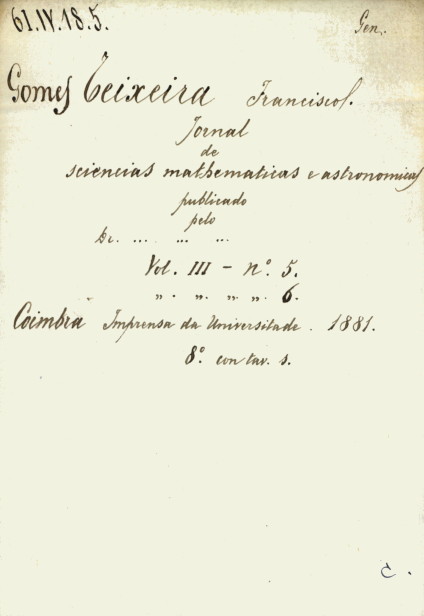 61.IV.18.5.
Gen.
Gomes Teixeira Francisco.
Jornal
de
sciencias mathematicas e astronomicas
publicado
pelo
Dr. ... ... ...
Vol. III - n.º 5.
„ . „ . „ „ . 6.
Coimbra Imprensa da Universitade . 1881.
8.º con tav. s.
C .